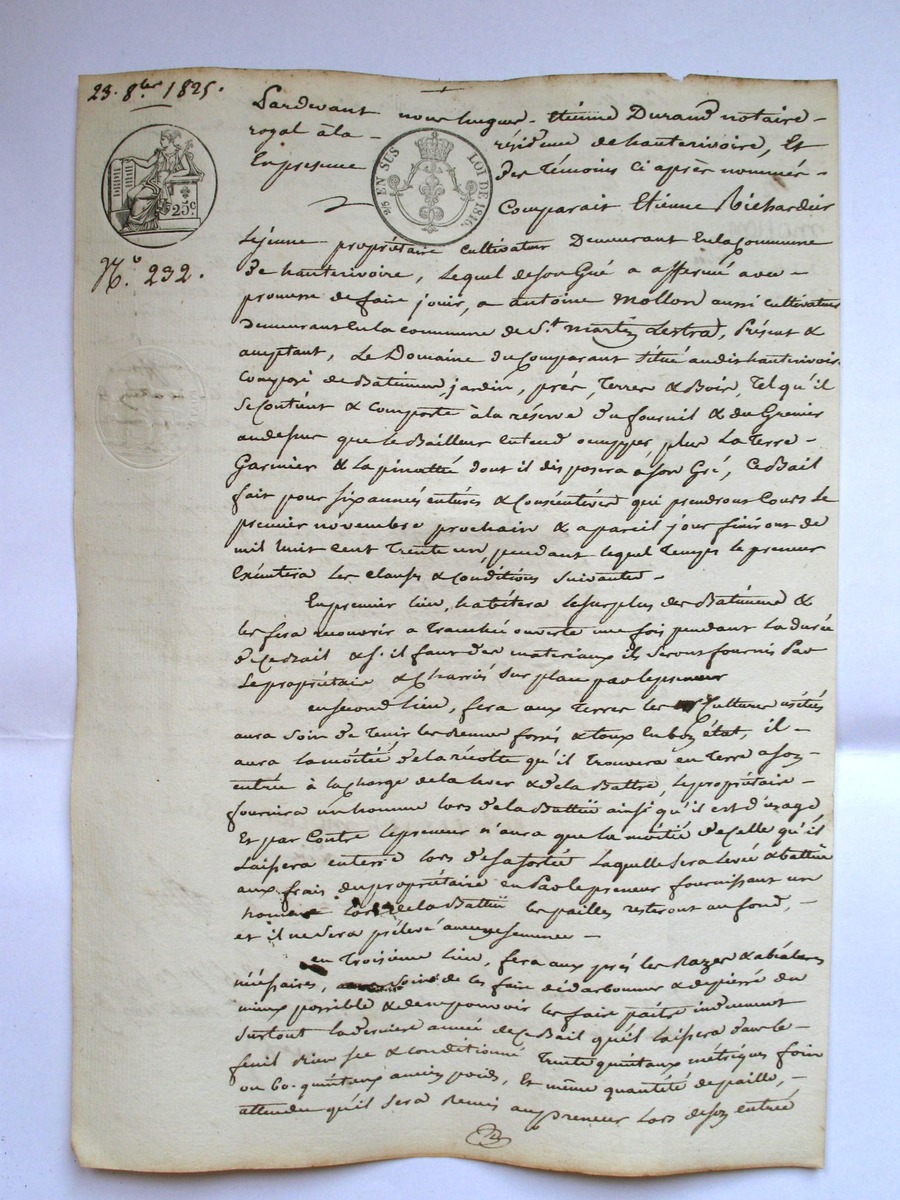 23. 8bre 1825.
Pardevant nous hugues-étienne Durand notaire
royal à la résidence de hauterivoire, Et
En presence des Témoins Ci après nommés
Comparait Etienne Richardier
25c.
2/5 EN SUS LOI DE 1816.
N.o 232.
Lejeune propriétaire cultivateur Demeurant En la Commune
de hauterivoire, Lequel de son Gré a affermé avec
promesse de faire jouir, a antoine mollon aussi cultivateur
demeurant En la commune de St martin Lestra, Présent &
acceptant, Le Domaine du Comparant situé audit hauterivoire
Composé de Batimens, jardin, prés, Terres & Bois, Tel qu'il
se Contient & comporte à la réserve du fournil & du Grenier
audessus que le Bailleur entend occupper, plus La Terre
Garinier & la pinattée dont il disposera à son Gré, Ce Bail
fait pour six années entières & Consécutives qui prendront Cours le
premier novembre prochain & a pareil jour finiront de
mil huit cent Trente un, pendant lequel Temps le preneur
Exécutera les clauses & Conditions suivantes
En premier lieu, habitera Le surplus des Batimens &
les fera recouvrir a Tranchée ouverte une fois pendant la durée
de Ce Bail & s'il faut des materiaux ils seront fournis Par
Le propriétaire & Charriés sur place par le preneur
en second lieu, fera aux Terres les Cultures usitées
aura soin de Tenir les fossés & Toux En bon état, il
aura la moitié de la récolte qu'il Trouvera en Terre a son
entrée à la Charge de la lever & de la Battre, le propriétaire
fournira un homme lors de la Battüe ainsi qu'il est d'usage
Et par Contre le preneur n'aura que la moitié de Celle qu'il
Laissera enterré lors de sa sortie Laquelle sera levée & battüe
aux frais du propriétaire en Par le preneur fournissant un
homme lors de la Battüe les pailles resteront au fond,
et il ne sera prélevé aucune semence
en Troisieme lieu, fera aux prés les Razes &
nécessaires, soins de les faire dédarbonner & dépierré du
mieux possible & de ne pouvoir les faire paitre induement
surtout la derniere année de Ce Bail qu'il laissera dans le
fenil bien sec & conditionné Trente quintaux métriques foin
ou 60. quintaux ancien poids, Et même quantité de paille,
attendu qu'il sera Remis au preneur Lors de son entrée